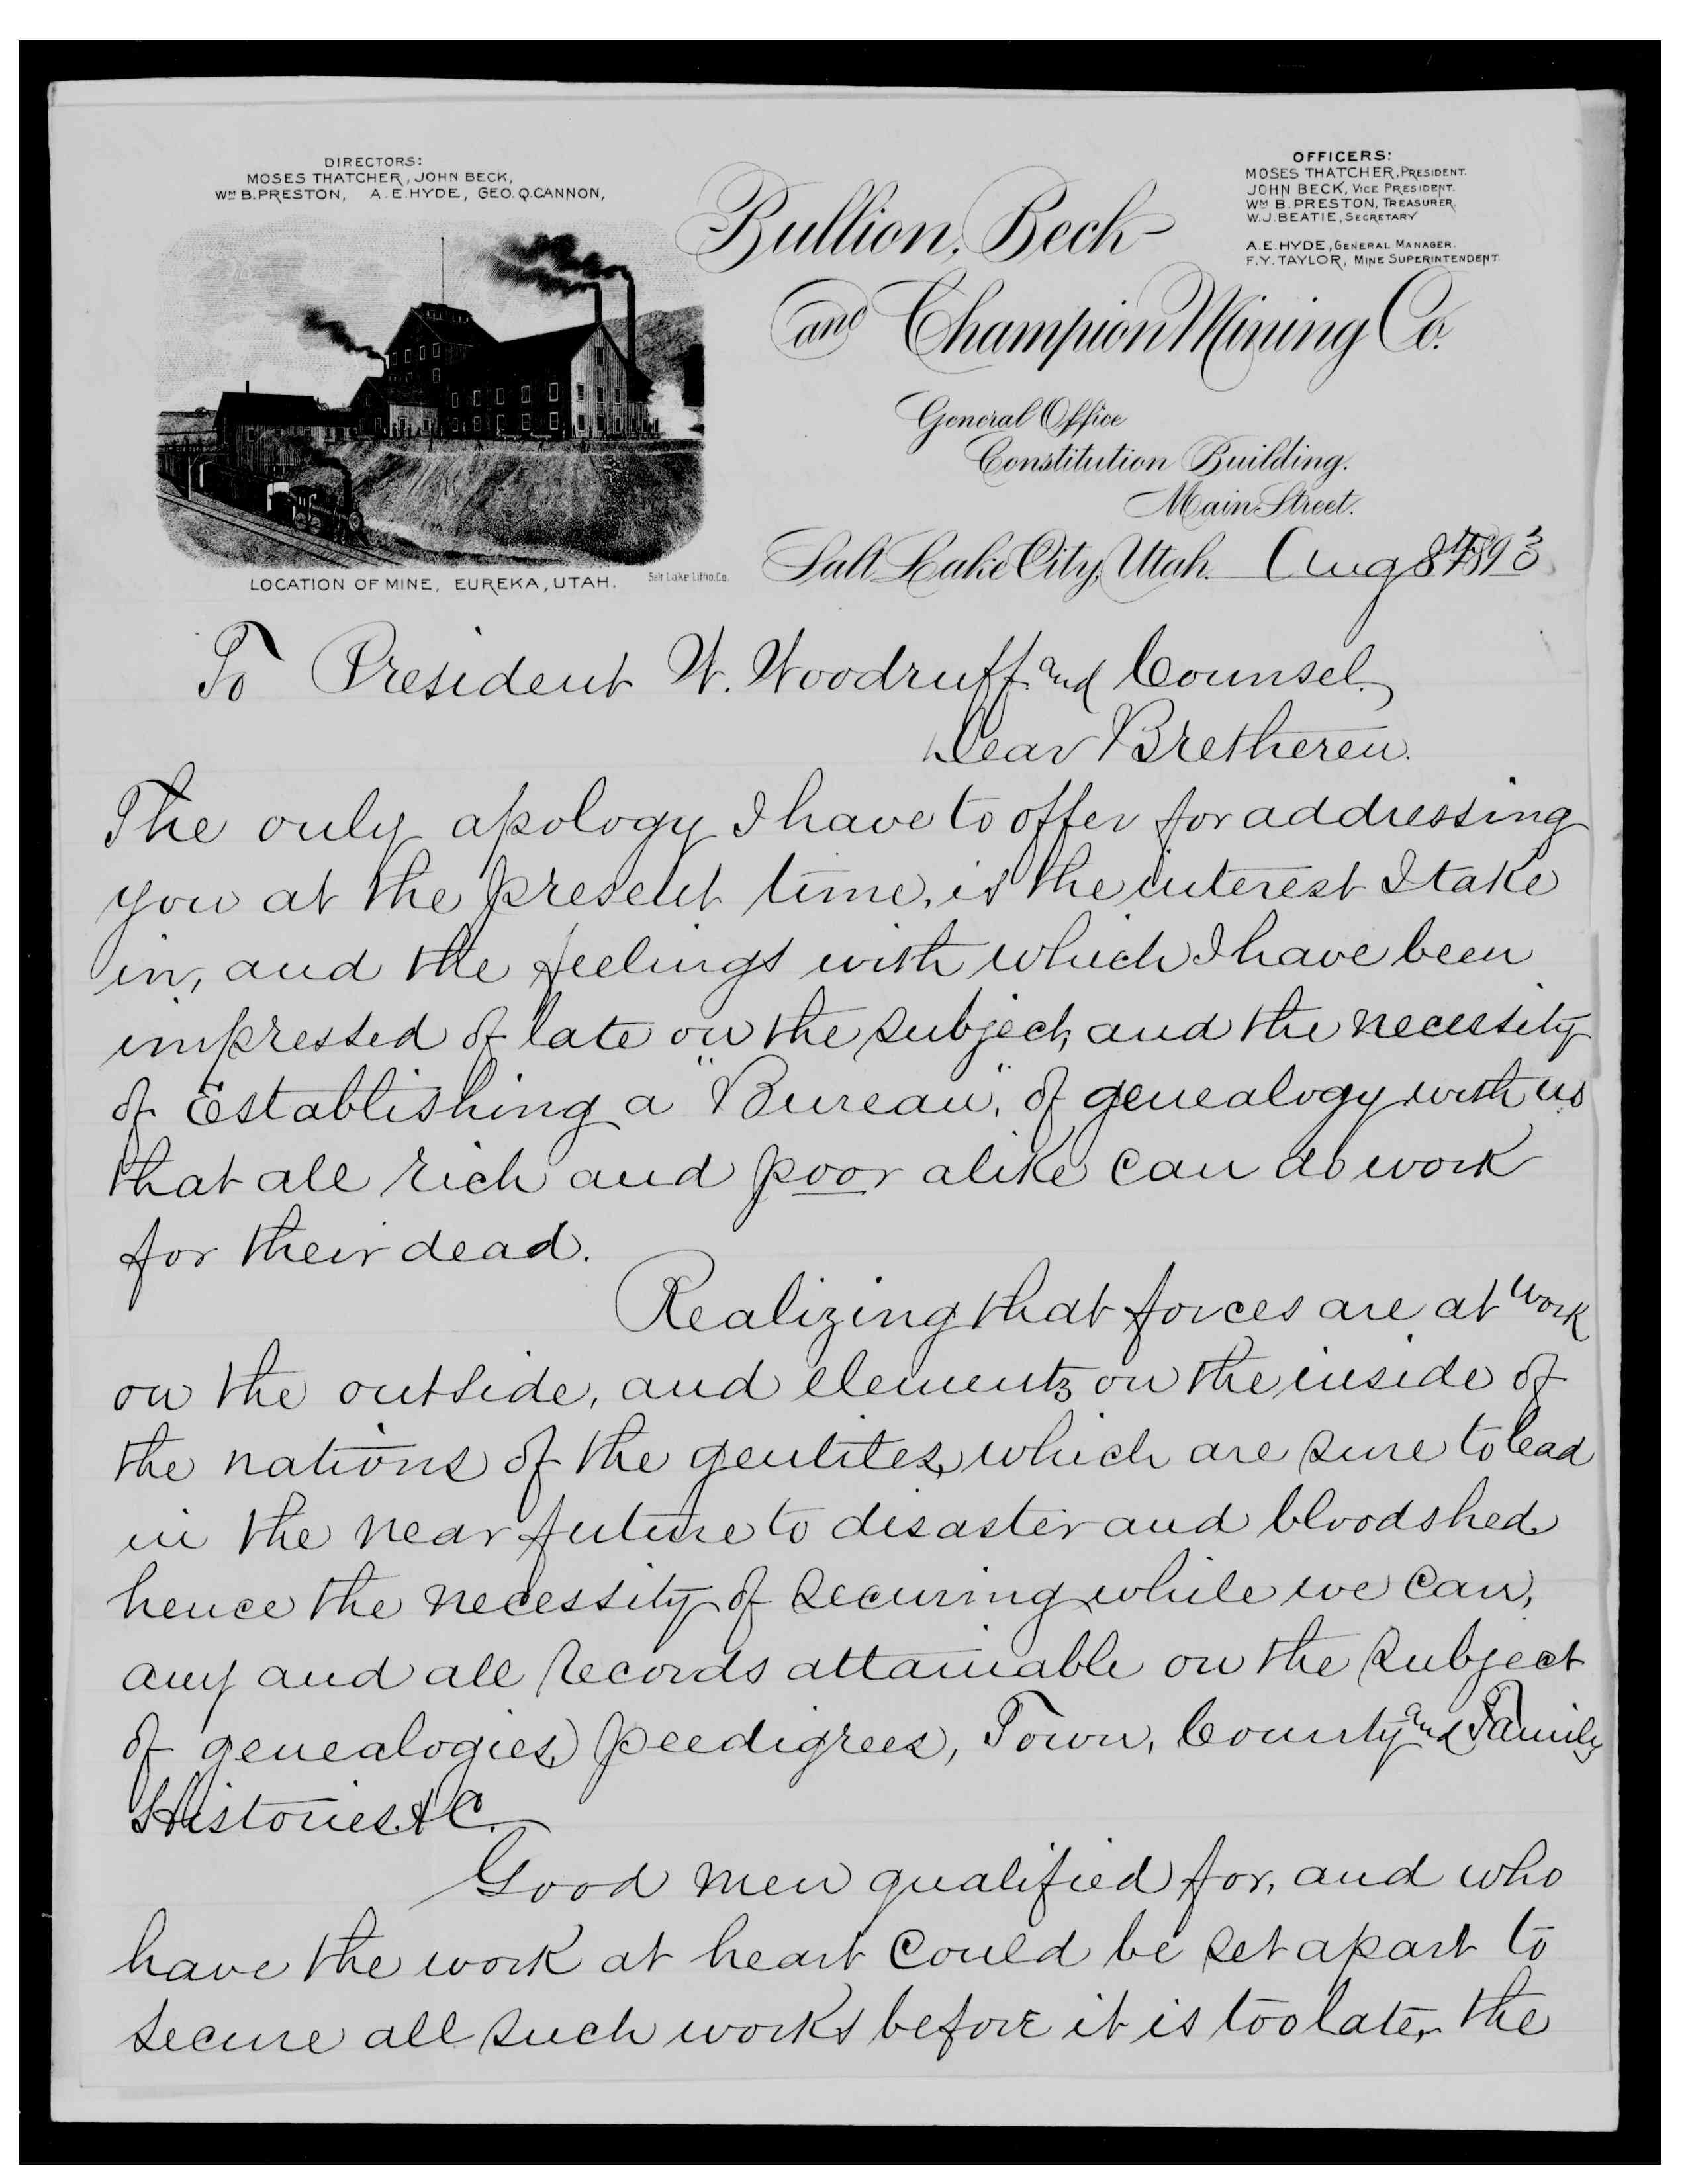 DIRECTORS:
MOSES THATCHER, JOHN BECK,
WM B. PRESTON, A. E. HYDE, GEO. Q. CANNON,
OFFICERS:
MOSES THATCHER, PRESIDENT.
JOHN BECK, VICE PRESIDENT.
WM B. PRESTON, TREASURER.
W. J. BEATIE, SECRETARY
A. E. HYDE, GENERAL MANAGER.
F. Y. TAYLOR, MINE SUPERINTENDENT.
Bullion, Beck
and Champion Mining Co.
General Office
Constitution Building.
Main Street.
LOCATION OF MINE, EUREKA, UTAH.
Salt Lake Litho. Co.
Salt Lake City, Utah. Aug 8th 1893
To President W. Woodruff and Counsel.
Dear Bretheren.
The only apology I have to offer for addressing
you at the present time, is the interest I take
in, and the feelings with which I have been
impressed of late on the subject, and the necessity
of Establishing a "Bureau", of genealogy with us
that all rich and poor alike can do work
for their dead.
Realizing that forces are at work
on the outside, and elements on the inside of
the nations of the gentiles, which are sure to lead
in the near future to disaster and bloodshed
hence the necessity of securing while we can,
any and all records attainable on the subject
of genealogies, peedigrees, Town, County and Family
Histories &C.
Good men qualified for, and who
have the work at heart could be set apart to
secure all such works before it is too late, the